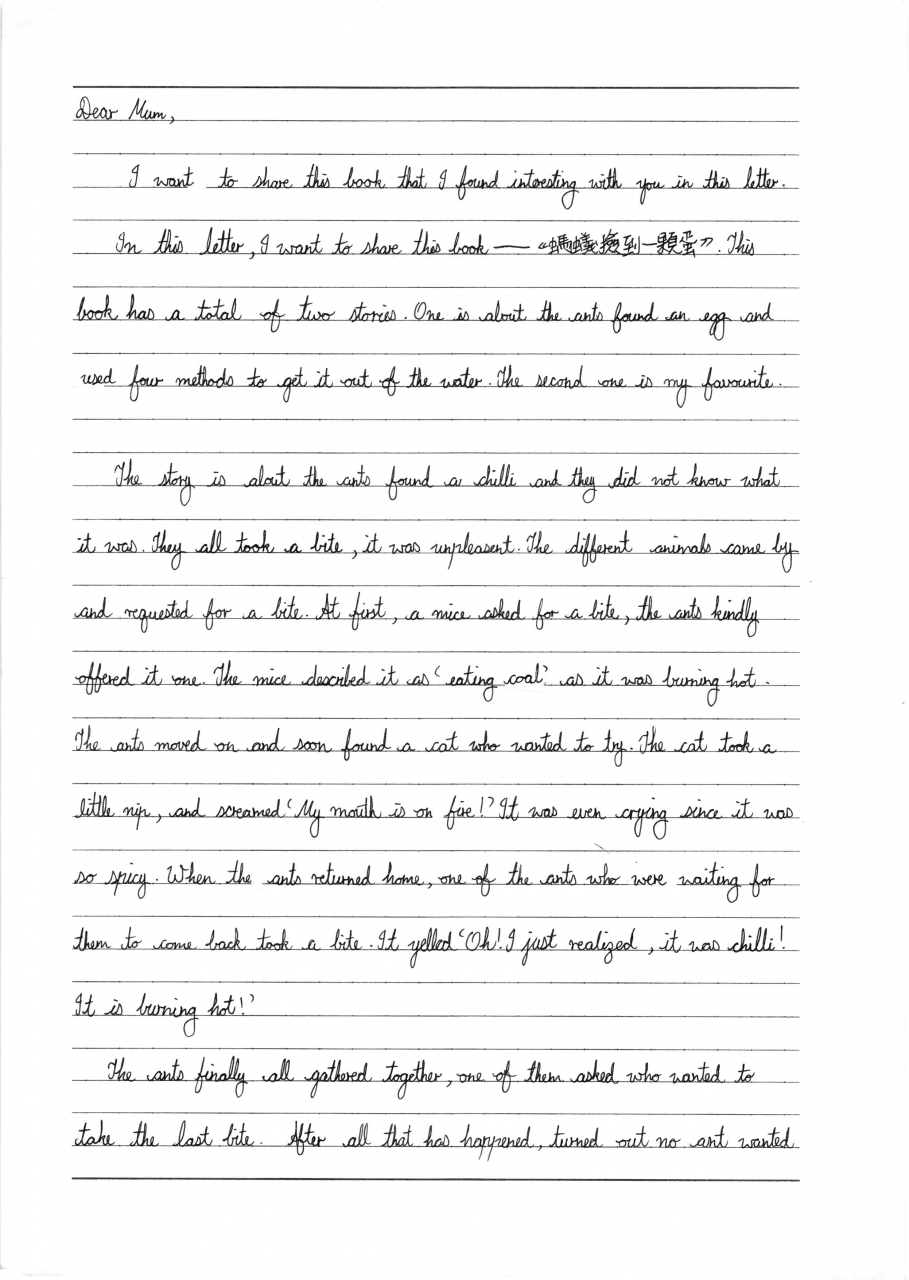 Dear Mum,
I want to share this book that I found interesting with you in this letter.
In this letter, I want to share this book — “螞蟻撿到一顆蛋”. This
book has a total of two stories. One is about the ants found an egg and
used four methods to get it out of the water. The second one is my favourite.
The story is about the ants found a chilli and they did not know what
it was. They all took a bite, it was unpleasent. The different animals came by
and requested for a bite. At first, a mice asked for a bite, the ants kindly
offered it one. The mice described it as ‘eating coal’ as it was burning hot.
The ants moved on and soon found a cat who wanted to try. The cat took a
little nip, and screamed ‘My mouth is on fire!’ It was even crying since it was
so spicy. When the ants returned home, one of the ants who were waiting for
them to come back took a bite. It yelled ‘Oh! I just realized, it was chilli!
It is burning hot!’
The ants finally all gathered together, one of them asked who wanted to
take the last bite. After all that has happened, turned out no ant wanted